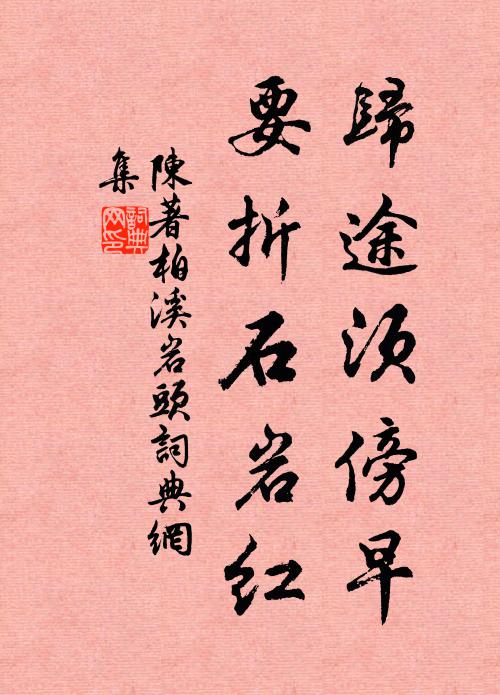 歸途須傍早
要折石岩紅
陳著柏溪岩頭詞典網
集
詞典
网印